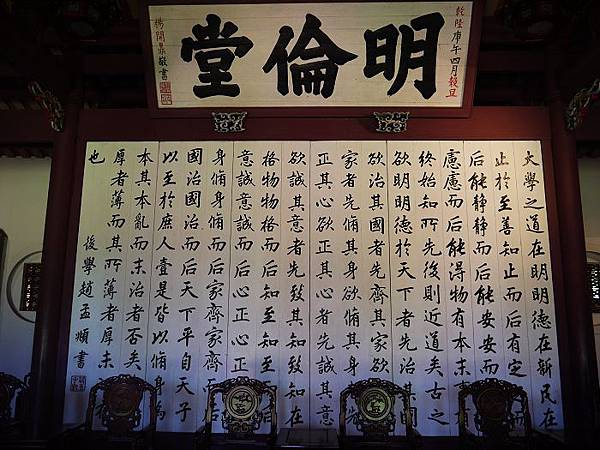 明倫堂
乾隆庚午四月穀旦
楊開鼎敬書
大學之道在明明德在新民在
止於至善知止而后有定
后能靜靜而后能安安而
慮慮而后能得物有本末事有
終始知所先後則近道矣古之
欲明明德於天下者先治其
欲治其國者先齊其家欲
家者先脩其身欲脩其身
正其心欲正其心者先誠其意
欲誠其意者先致其知致知在
格物物格而后知至知至
意誠意誠而后心正心正
身脩身脩而后家齊家齊而后
國治國治而后天下平自天子
以至於庶人壹是皆以脩身為
本其本亂而末治者否矣
厚者薄而其所薄者厚未
也
後學趙孟頫書